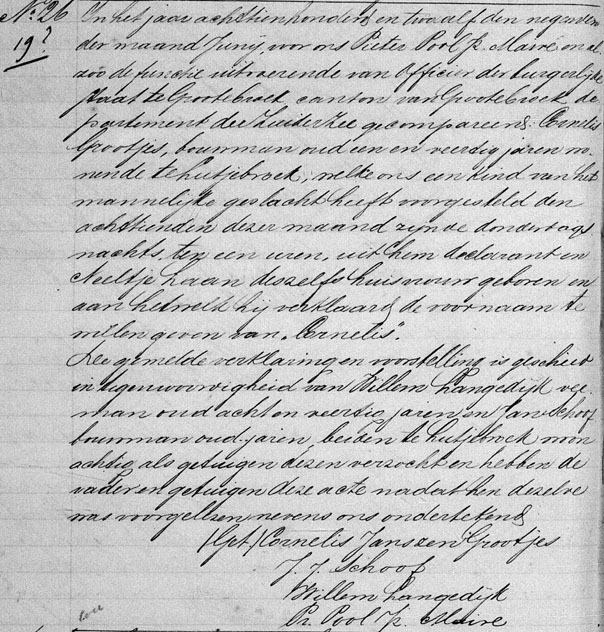 No. 26 In het jaar achttienhonderd en twaalf den negenden
19? der maand Junij, voor ons Pieter Pool Jz. Maire en al
zoo de functie uitoerende van Officier der burgerlijke
staat te Grootebroek canton van Grootebroek de
partement der Zuiderzee gecompareerd: Cornelis
Grootjes, bouwman oud een en veertig jaren wo
nende te Lutjebroek, welke ons een kind van het
mannelijke geslacht heeft voorgesteld den
achttienden dezer maand zijnde donderdags
nachts, ten een uren, uit hem declarant en
Neeltje Laan deszelfs huisvrouw geboren en
aan hetwelk hij verklaard de voornaam te
willen geven van "Cornelis".
De gemelde verklaring en voorstelling is geschied
in tegenwoordigheid van Willem Langedijk vee
man oud acht en veertig jaren en Jan Schoof
bouwman oud jaren, beiden te Lutjebroek woon
achtig, als getuigen dezen verzocht en hebben de
vader en getuigen deze acte nadat hen dezelve
was voorgelezen nevens ons onderteekend
(Get) Cornelis Janszen Grootjes
J. J. Schoof
Willem Langedijk
Pr. Pool Jz. Maire